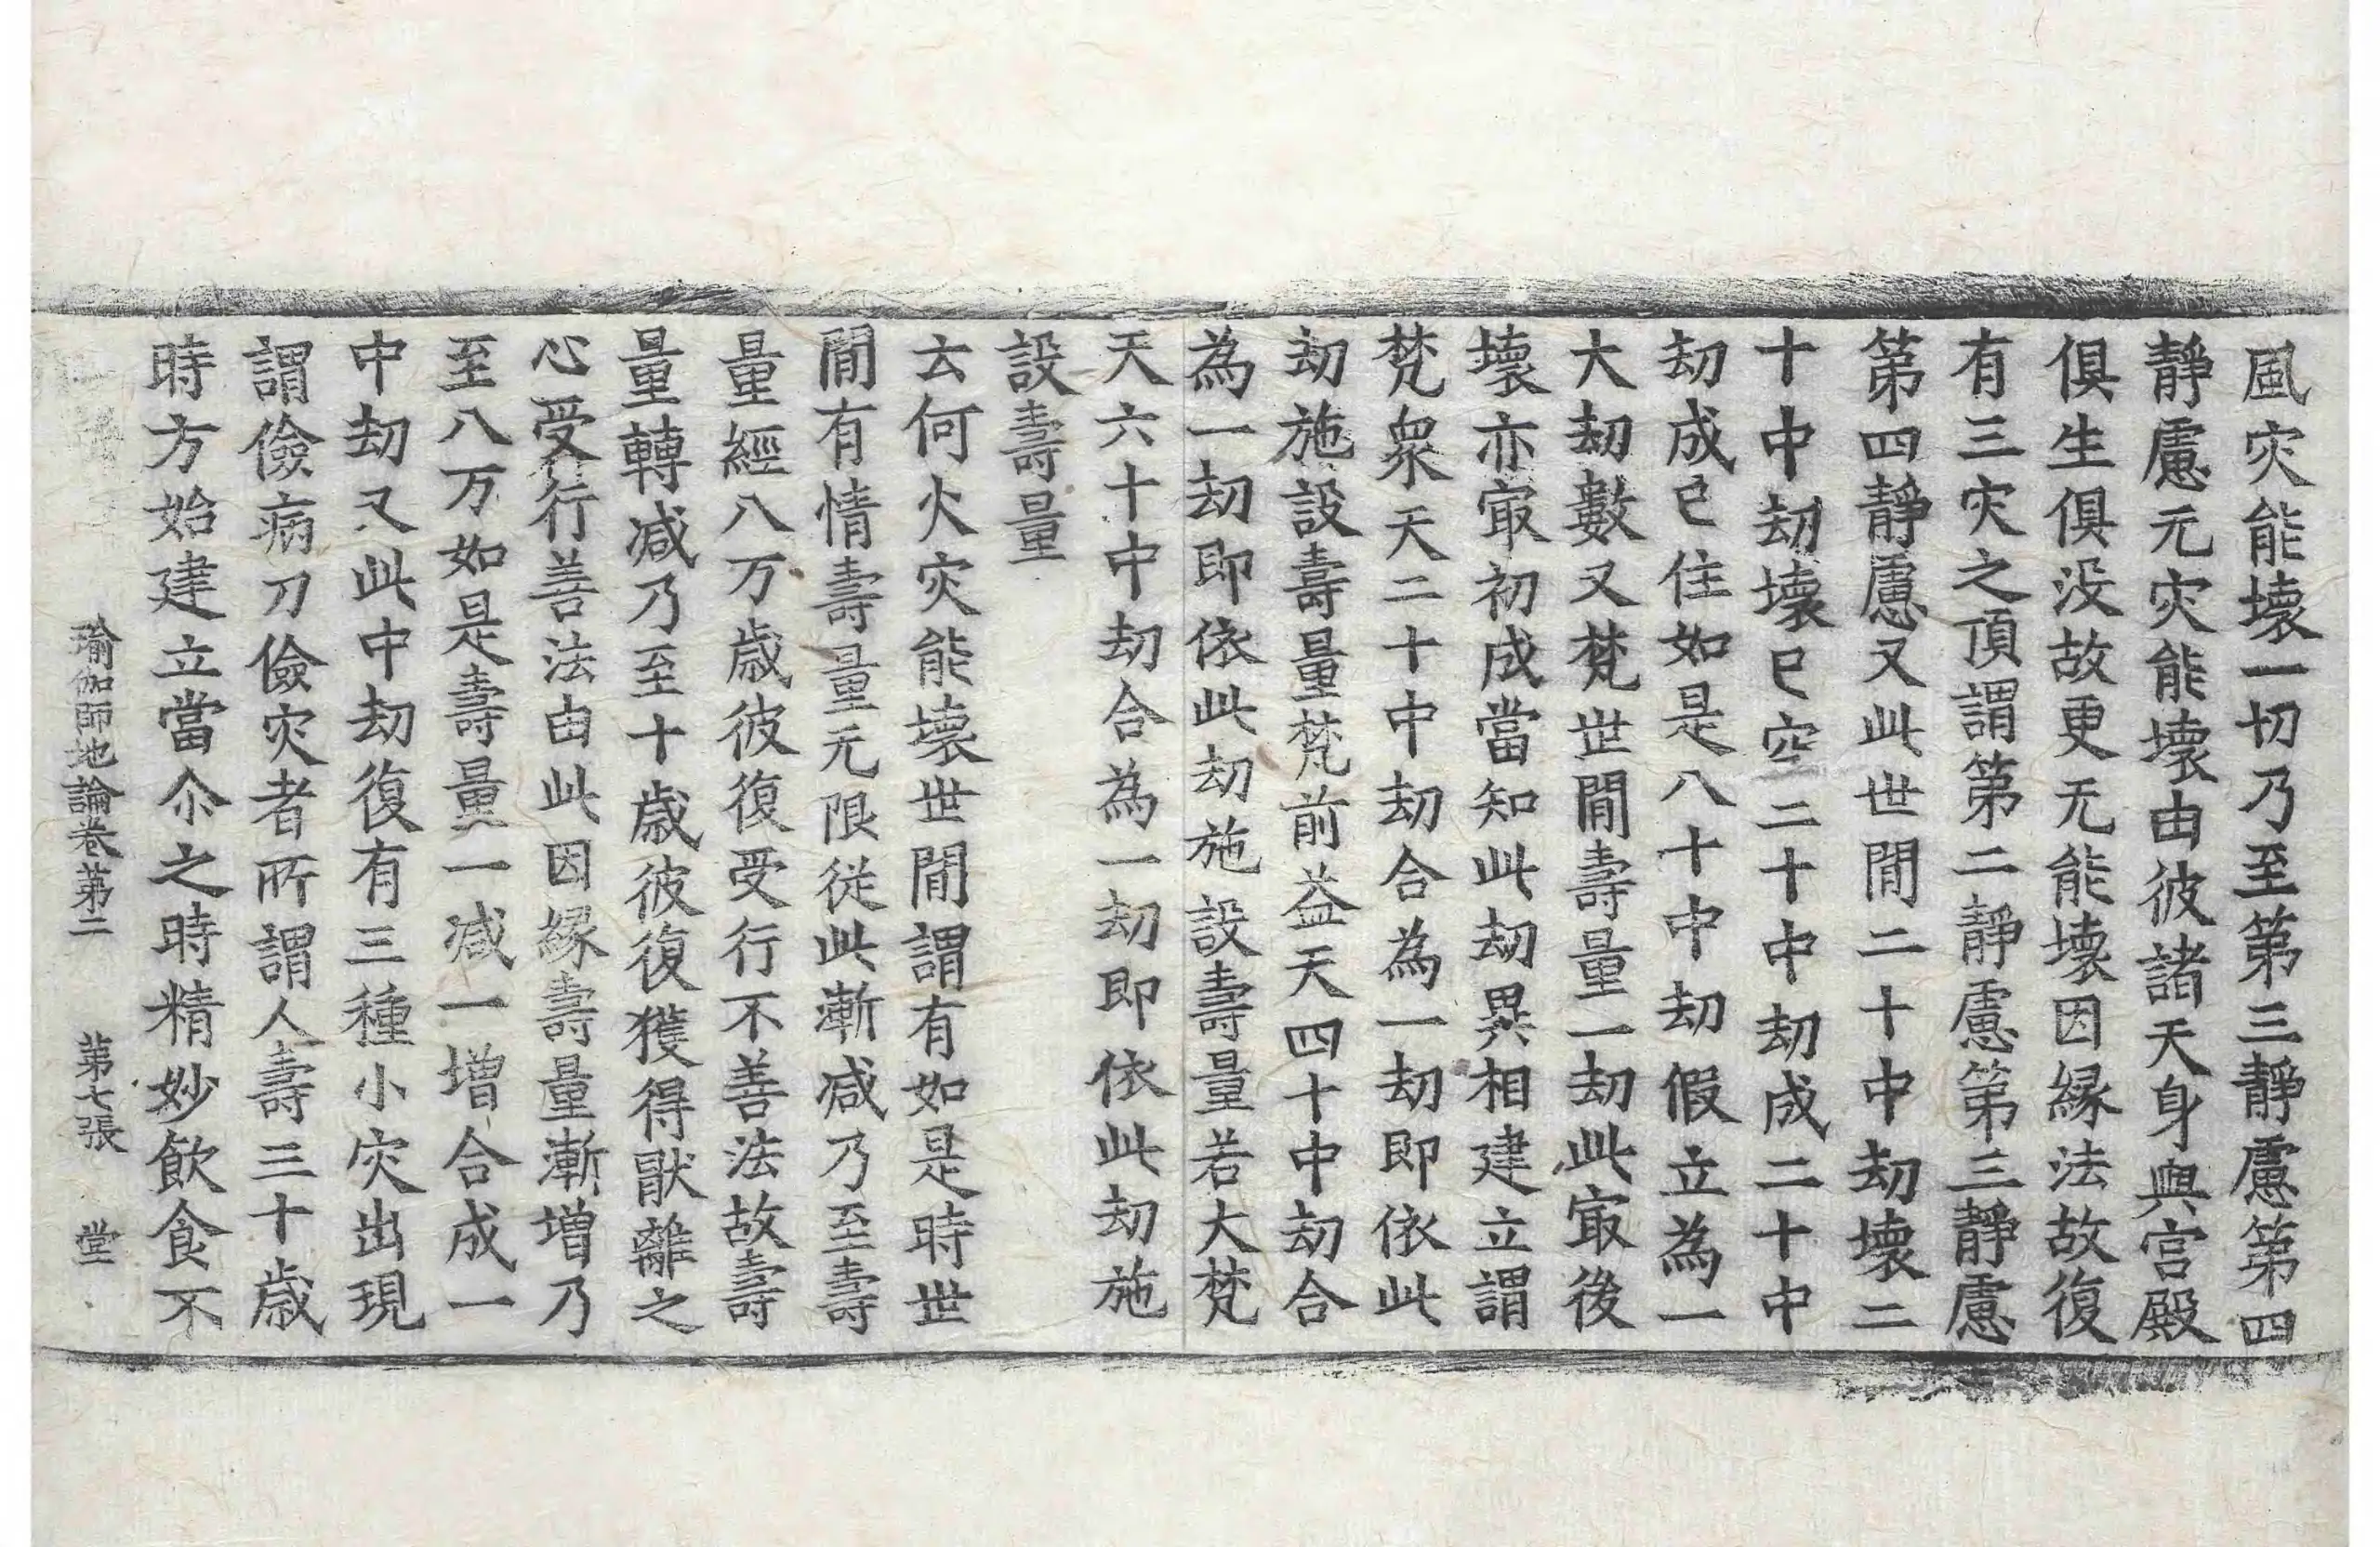 風灾能壞一切乃至第三靜慮第四
靜慮无灾能壞由彼諸天身與宫殿
俱生俱没故更无能壞因縁法故復
有三灾之頂謂第二靜慮第三靜慮
第四靜慮又此世閒二十中劫壞二
十中劫壞已空二十中劫成二十中
劫成已住如是八十中劫假立為一
大劫數又梵世閒壽量一劫此冣後
壞亦冣初成當知此劫異相建立謂
梵衆天二十中劫合為一劫即依此
劫施設壽量梵前益天四十中劫合
為一劫即依此劫施設壽量若大梵
天六十中劫合為一劫即依此劫施
設壽量
云何火灾能壞世閒謂有如是時世
閒有情壽量无限從此漸减乃至壽
量經八万歳彼復受行不善法故壽
量轉减乃至十歳彼復獲得猒離之
心受行善法由此因縁壽量漸增乃
至八万如是壽量一减一增合成一
中劫又此中劫復有三種小灾出現
謂儉病刀儉灾者所謂人壽三十歳
時方始建立當尒之時精妙飲食不
瑜伽師地論卷第二 第七張 堂